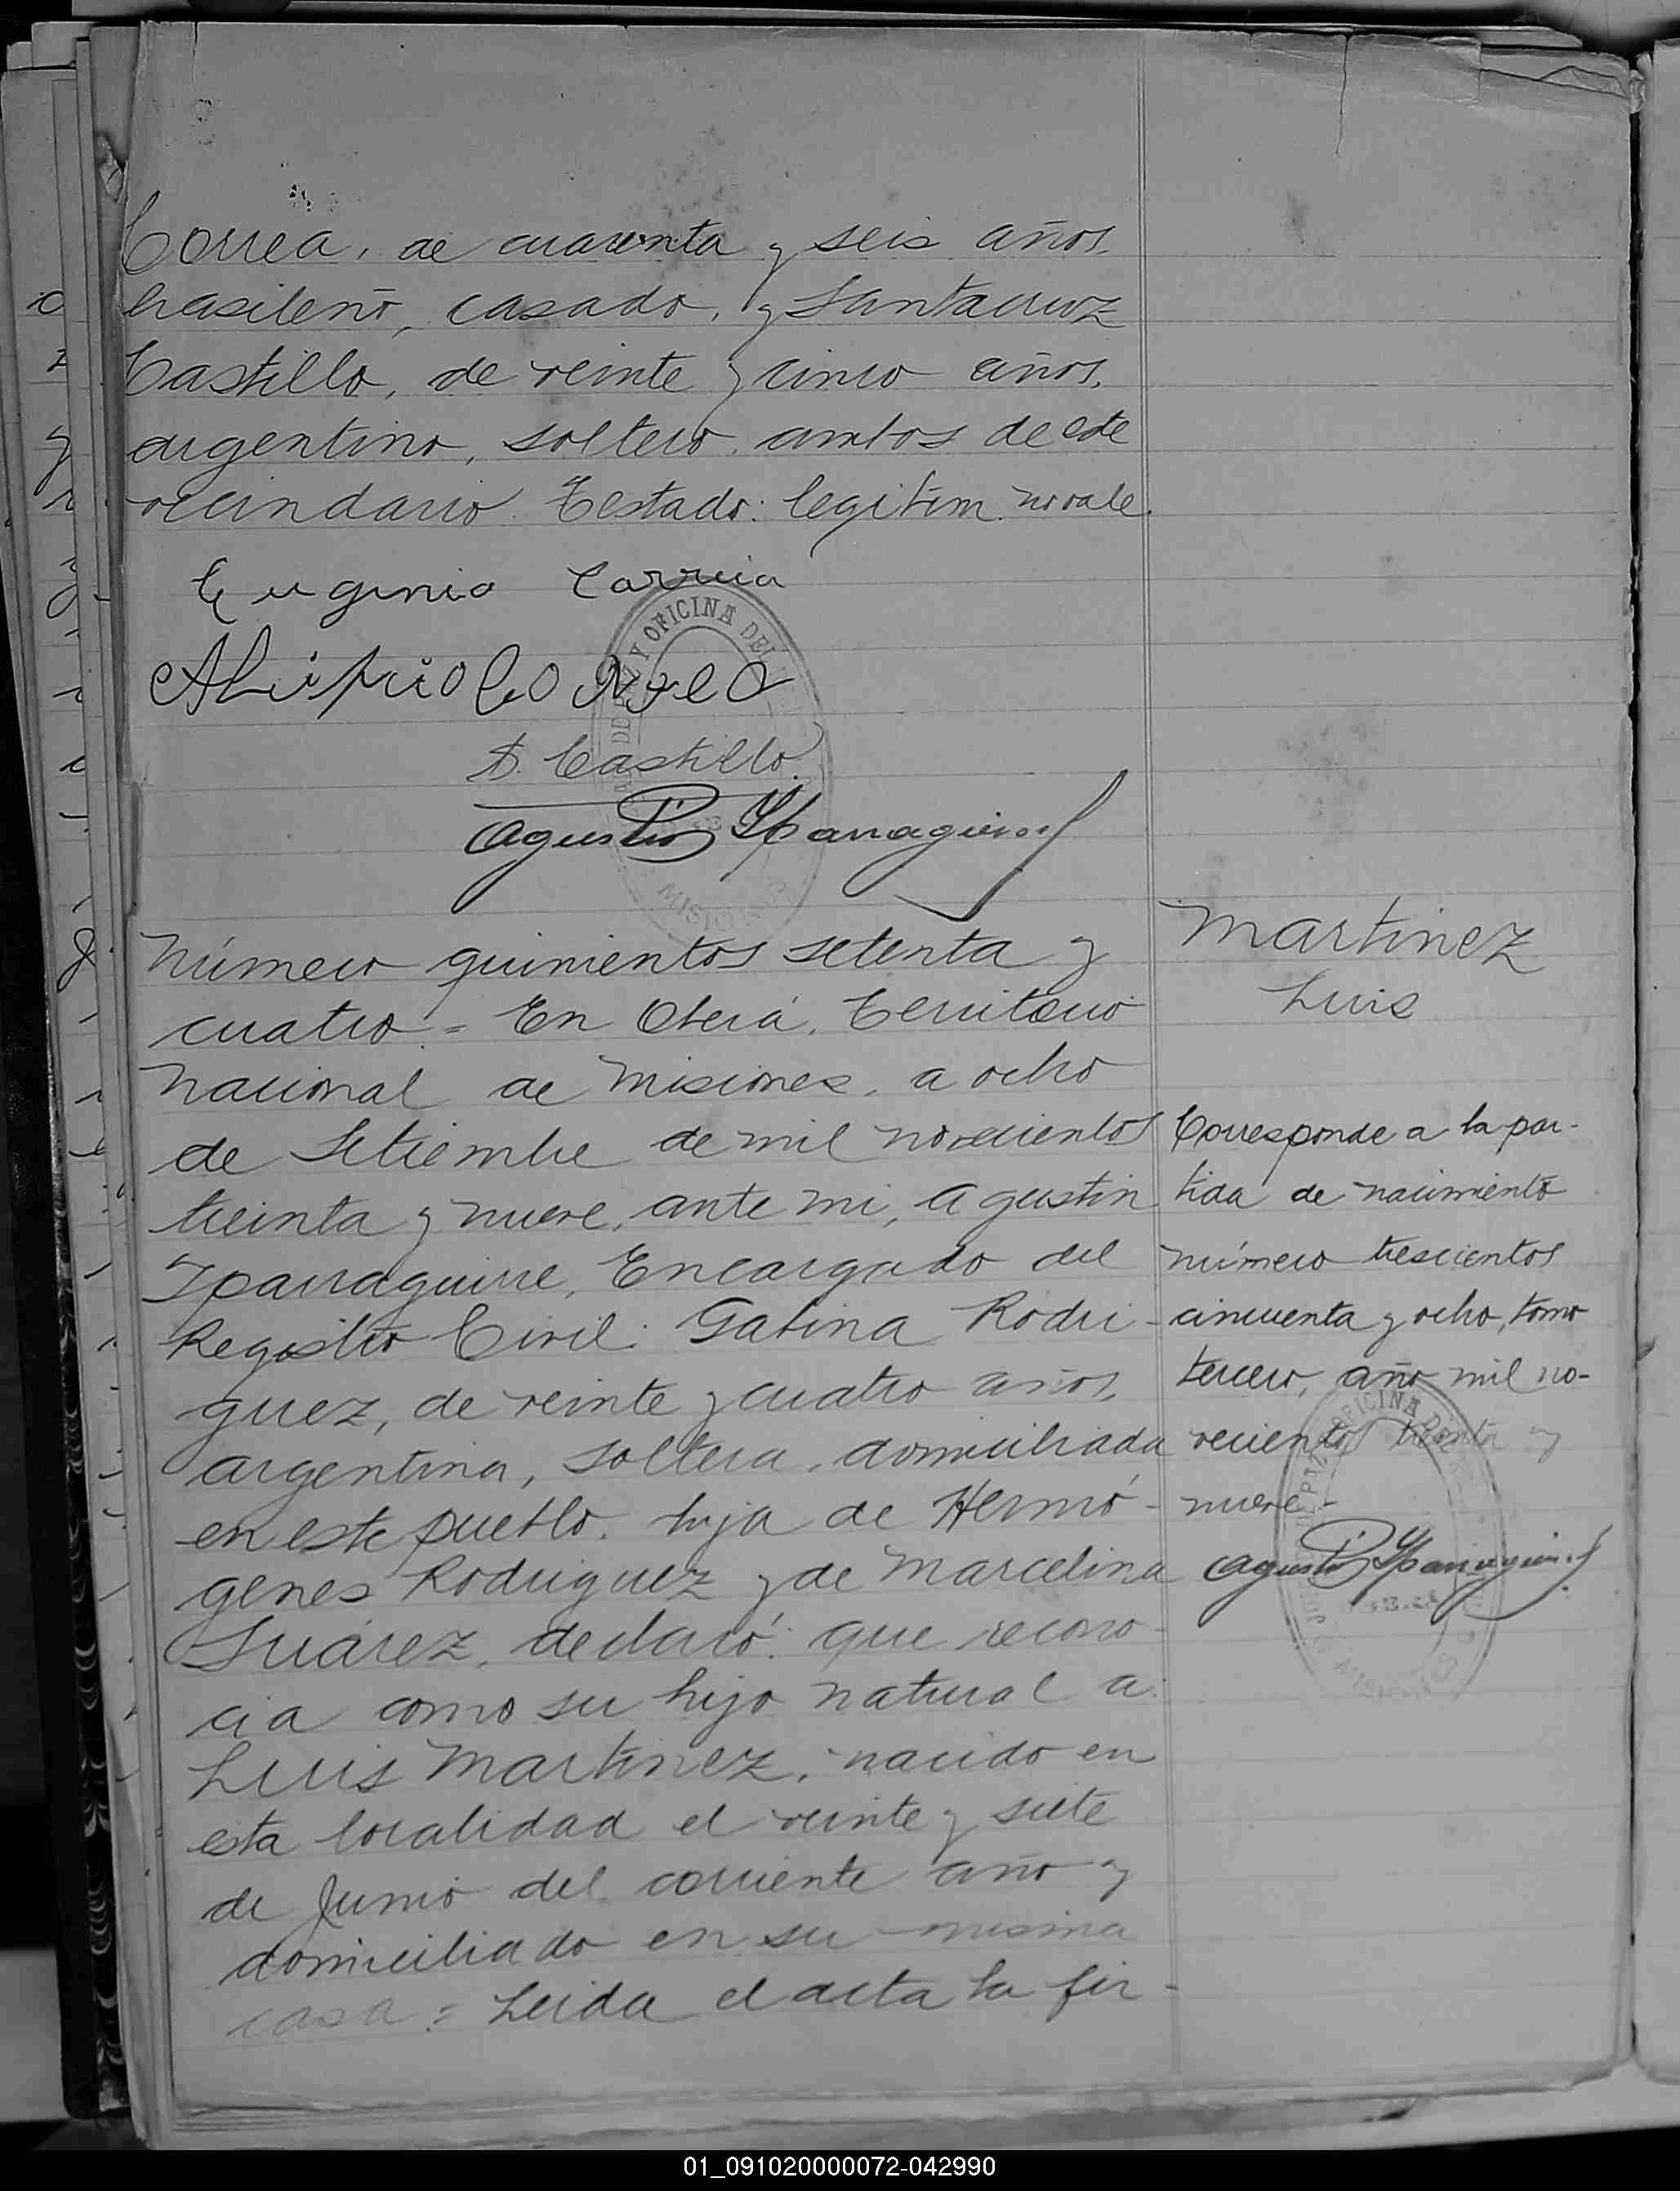 Correa, de cuarenta y seis años,
brasileño, casado, y Santacruz
Castillo, de veinte y cinco años,
argentino, soltero, ambos de este
vecindario. Testado: legitim. no vale.
Eugenio Correia
Alipio Correa
S. Castillo
Agustin Yparraguirre
Número quinientos setenta y
cuatro = En Oberá, Territorio
Nacional de Misiones, a ocho
de Setiembre de mil novecientos
treinta y nueve, ante mi, Agustin
Yparraguirre, Encargado del
Registro Civil: Gabina Rodri-
guez, de veinte y cuatro años,
argentina, soltera, domiciliada
en este pueblo, hija de Hermó-
genes Rodriguez y de Marcelina
Suárez, declaró: que recono-
cia como su hijo natural a:
Luis Martinez, nacido en
esta localidad el veinte y siete
de Junio del corriente año y
domiciliado en su misma
casa = Leida el acta la fir-
Martinez
Luis
Corresponde a la par-
tida de nacimiento
número trescientos
cincuenta y ocho, tomo
tercero, año mil no-
vecientos treinta y
nueve -
Agustin Yparraguirre
OFICINA DEL
MISIONES
01_091020000072-042990